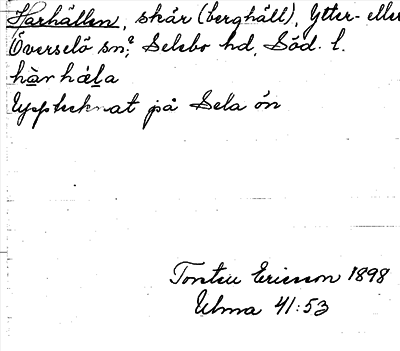 Harhällen, skär (berghäll), Ytter- eller
Överselö sn?, Selebo hd, Söd. l.
hàr hǽla
Upptecknat på Selaön
Torsten Ericsson 1898
Ulma 41:53